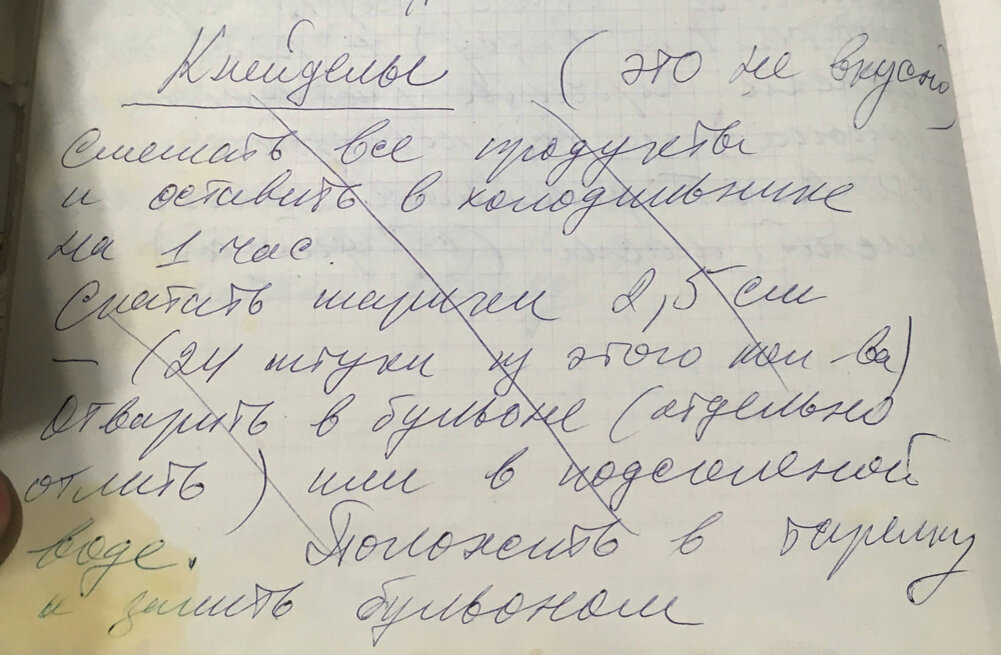 Кнейделы (это не вкусно)
Смешать все продукты
и оставить в холодильнике
на 1 час.
Скатать шарики 2,5 см
– (24 штуки из этого кол-ва)
отварить в бульоне (отдельно
отлить) или в подсоленой
воде. Положить в тарелку
и залить бульоном